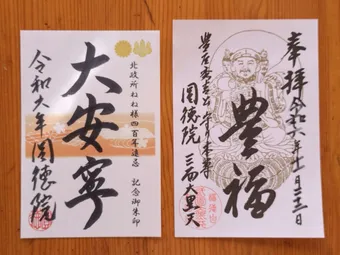 北政所ねね様四百年遠忌 記念御朱印
大安寧
令和六年 圓徳院
奉拝 令和六年十一月二十三日
豊福
三面大黒天
圓徳院